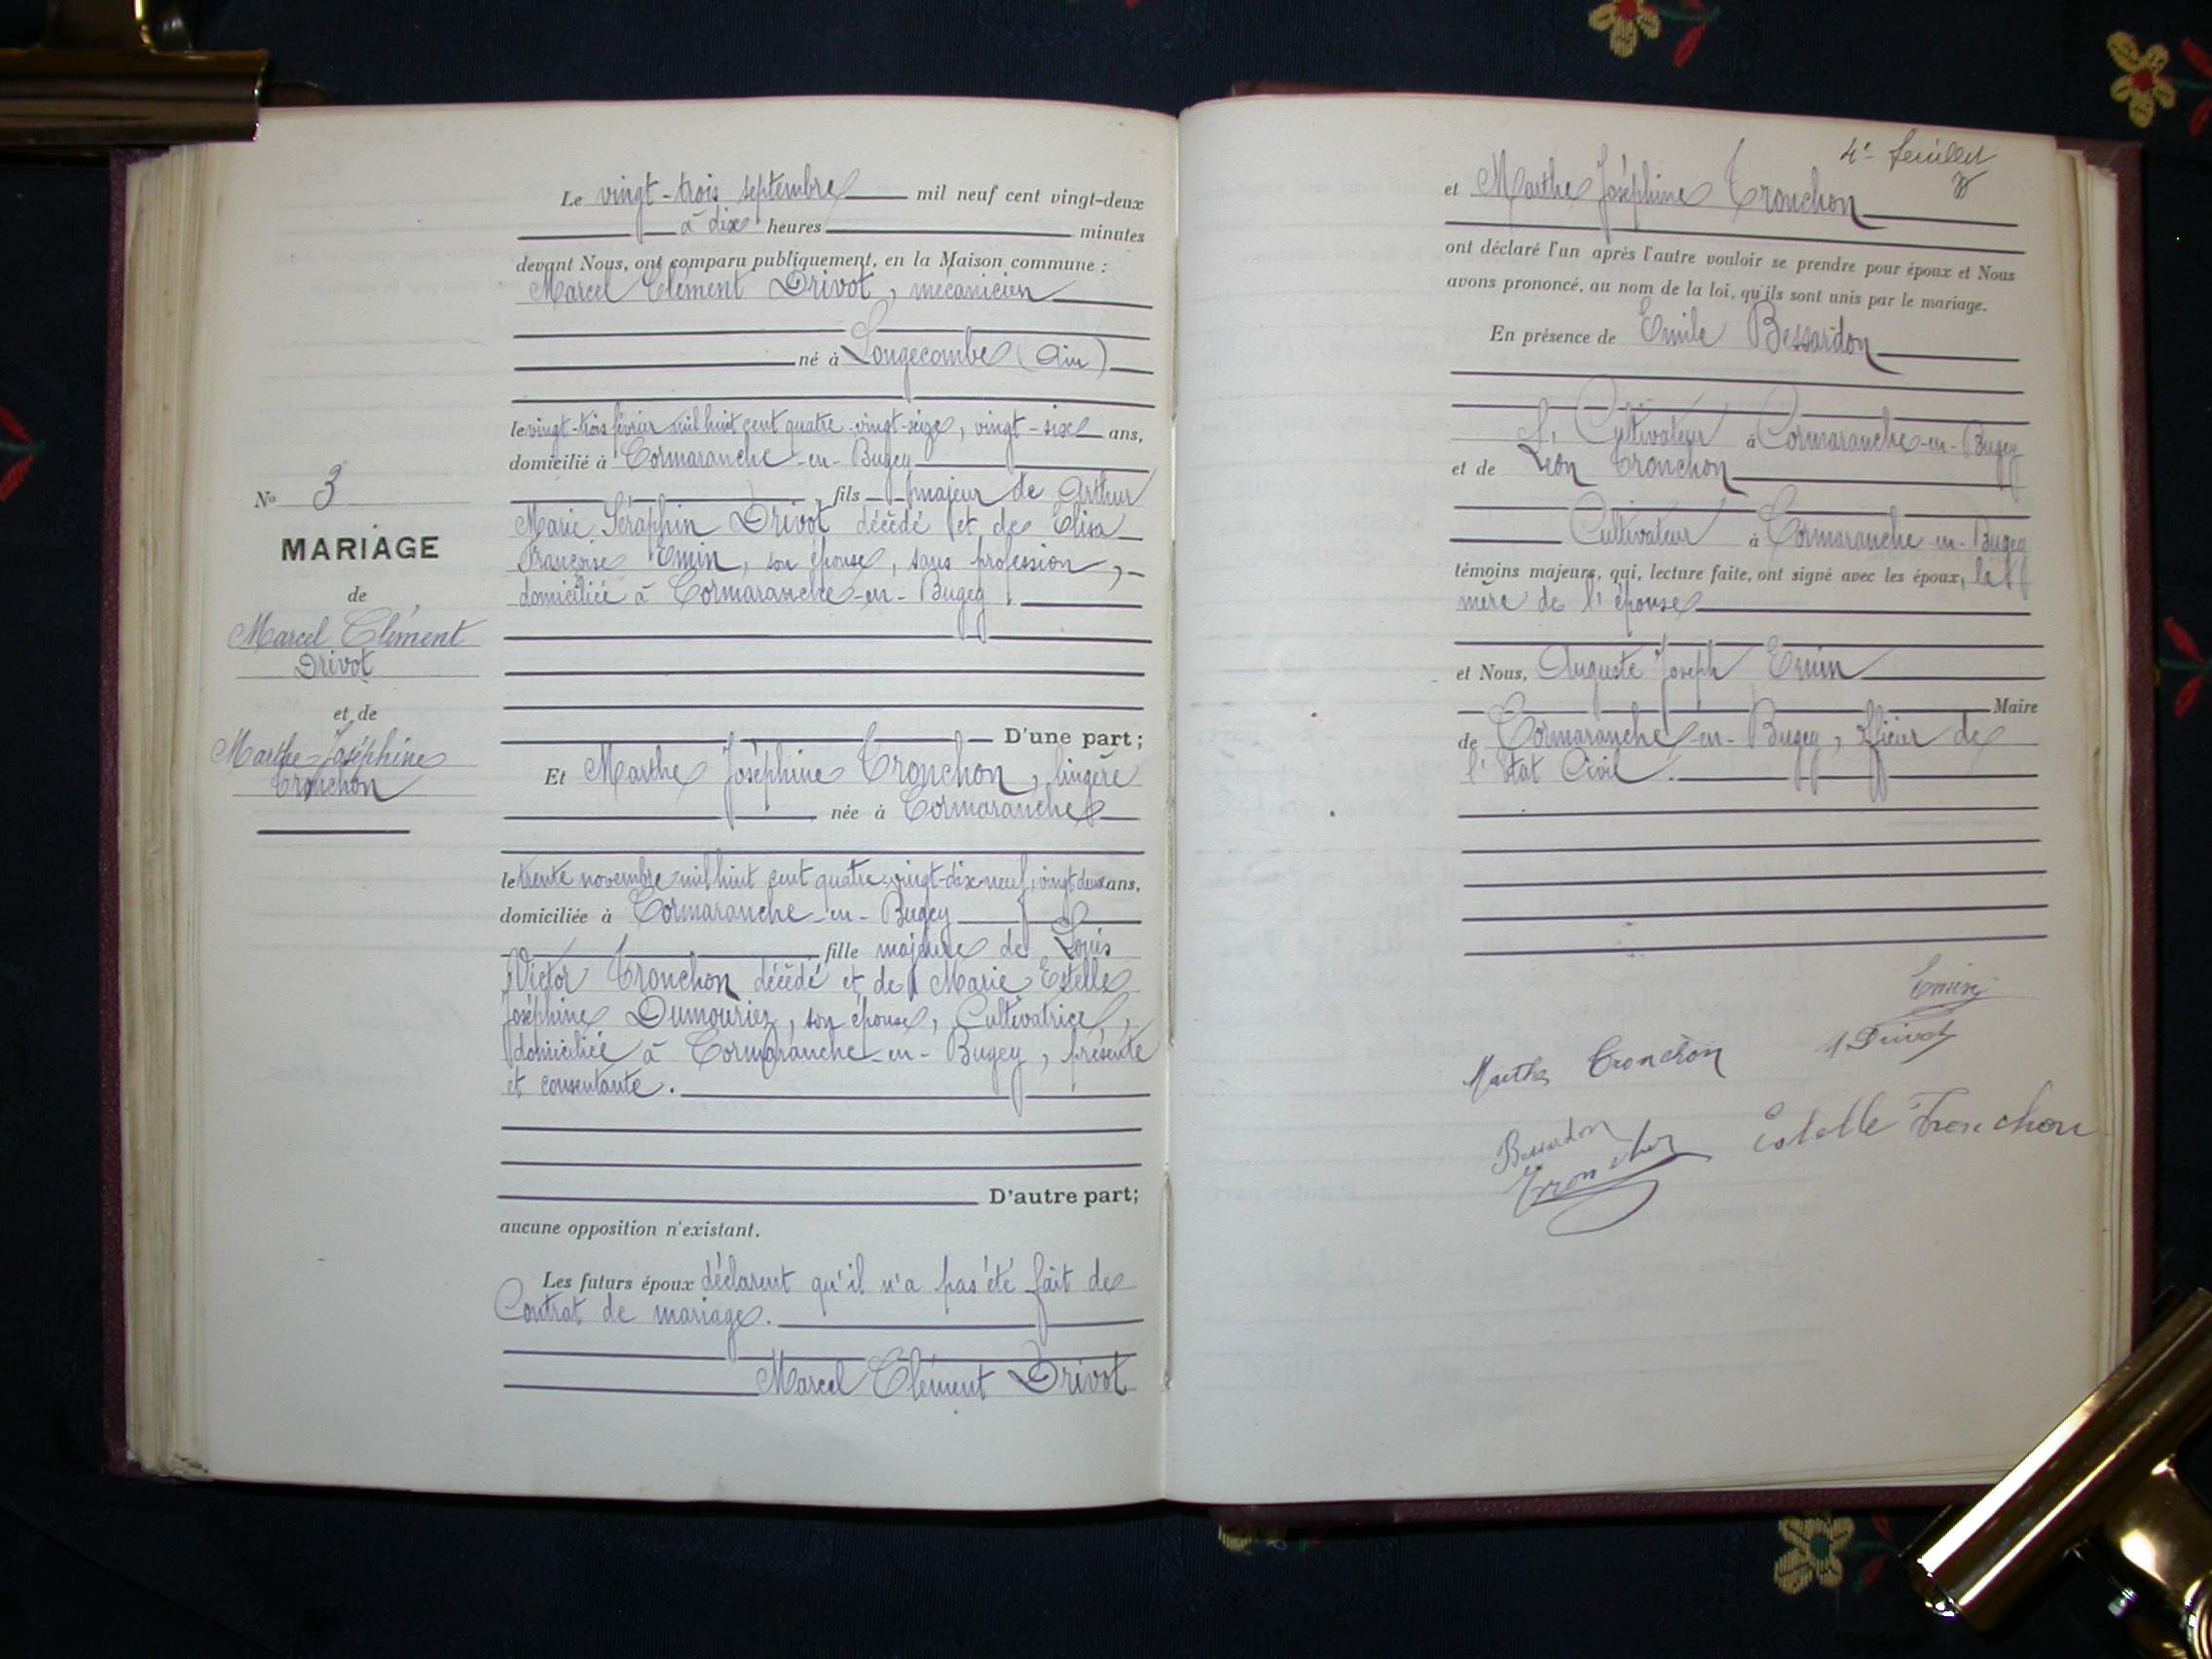 Le vingt-trois septembre mil neuf cent vingt-deux
à dix heures minutes
devant Nous, ont comparu publiquement, en la Maison commune :
Marcel Clément Drivot, mécanicien
né à Longecombe (Ain)
le vingt-trois février mil huit cent quatre-vingt-seize, vingt-six ans,
domicilié à Cormaranche-en-Bugey
fils majeur de Arthur
Marie Séraphin Drivot décédé et de Elisa
Françoise Emin, son épouse, sans profession,
domiciliée à Cormaranche-en-Bugey.
D'une part;
Et Marthe Joséphine Tronchon, lingère
née à Cormaranche
le trente novembre mil huit cent quatre-vingt-dix-neuf, vingt deux ans,
domiciliée à Cormaranche-en-Bugey
fille majeure de Louis
Victor Tronchon décédé et de Marie Estelle
Joséphine Dumouriez, son épouse, Cultivatrice,
domiciliée à Cormaranche-en-Bugey, présente
et consentante.
D'autre part;
aucune opposition n'existant.
Les futurs époux déclarent qu'il n'a pas été fait de
Contrat de mariage.
Marcel Clément Drivot
No 3
MARIAGE
de
Marcel Clément
Drivot
et de
Marthe-Joséphine
Tronchon
4e feuillet
et Marthe Joséphine Tronchon
ont déclaré l'un après l'autre vouloir se prendre pour époux et Nous
avons prononcé, au nom de la loi, qu'ils sont unis par le mariage.
En présence de Emile Bessardon
Cultivateur à Cormaranche-en-Bugey
et de Léon Tronchon
Cultivateur à Cormaranche-en-Bugey
témoins majeurs, qui, lecture faite, ont signé avec les époux, la
mère de l'épouse
et Nous, Auguste Joseph Emin
Maire
de Cormaranche-en-Bugey, officier de
l'Etat Civil.
Emin
Marthe Tronchon
M Drivot
Bessardon
Estelle Tronchon
Tronchon